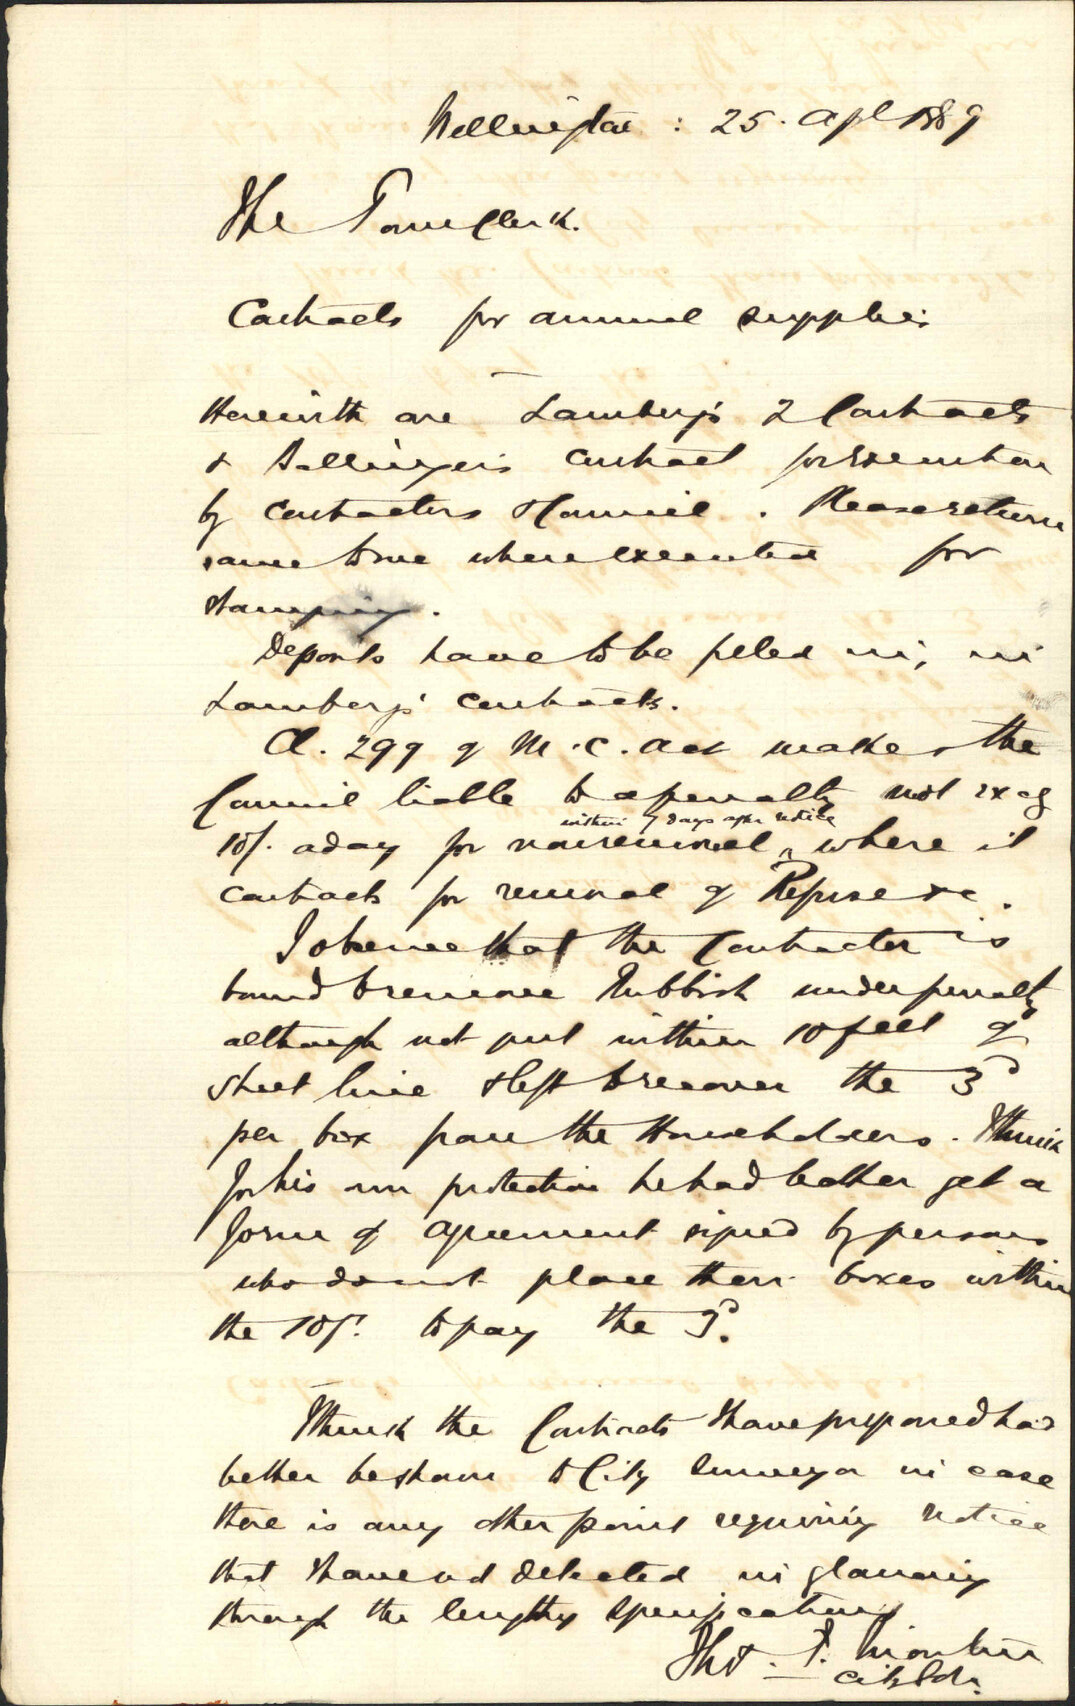 Wellington : 25. Apl 1889
The Town Clerk.
Contracts for annual supplies
Herewith are Lambery's 2 Contracts
& Ballinger's contract for execution
by contractors & Council . Please return
same to me when executed for
stamping .
Deposits have to be filled in, in
Lambery's contracts.
Cl. 299 of M.C. Act makes the
Council liable to a penalty not exc g
within 7 days after notice
10/. a day for nonremoval where it
contracts for removal of Refuse &c .
I observe that the Contractor is
bound to remove Rubbish under penalty
although not put within 10 feet of
street line & left to recover the 3d
per box from the Householders. I think
for his own protection he had better get a
form of agreement signed by persons
who do not place their boxes within
the 10f. to pay the 3d.
I think the Contracts I have prepared had
better be shown to City Surveyor in case
there is any other point requiring notice
that I have not detected in glancing
through the lengthy specifications
Thos. F. Martin
City Solr.